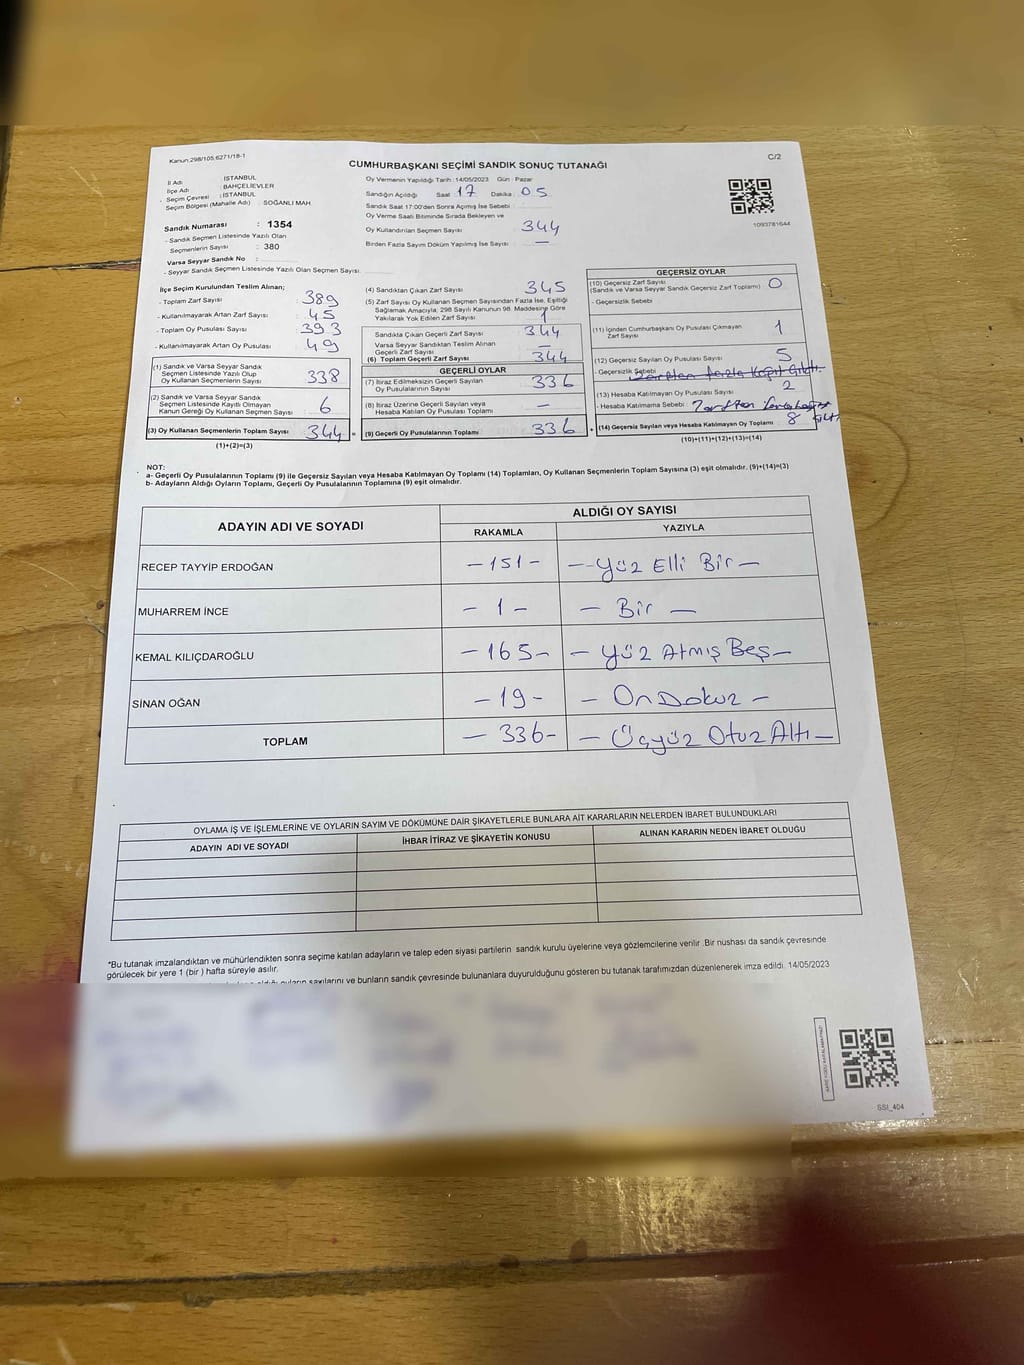 Kanun:298/105,6271/18-1
CUMHURBAŞKANI SEÇİMİ SANDIK SONUÇ TUTANAĞI
C/2
İl Adı : İSTANBUL
İlçe Adı : BAHÇELİEVLER
Seçim Çevresi : İSTANBUL
Seçim Bölgesi (Mahalle Adı) : SOĞANLI MAH
Sandık Numarası : 1354
- Sandık Seçmen Listesinde Yazılı Olan
Seçmenlerin Sayısı : 380
Varsa Seyyar Sandık No :
- Seyyar Sandık Seçmen Listesinde Yazılı Olan Seçmen Sayısı
Oy Vermenin Yapıldığı Tarih : 14/05/2023 Gün : Pazar
Sandığın Açıldığı Saat : 17 Dakika : 05
Sandık Saat 17:00'den Sonra Açımış İse Sebebi :
Oy Verme Saati Bitiminde Sırada Bekleyen ve
Oy Kullandırılan Seçmen Sayısı : 344
Birden Fazla Sayım Döküm Yapılmış İse Sayısı : —
1093781644
İlçe Seçim Kurulundan Teslim Alınan;
- Toplam Zarf Sayısı : 389
- Kullanılmayarak Artan Zarf Sayısı : 45
- Toplam Oy Pusulası Sayısı : 393
- Kullanılmayarak Artan Oy Pusulası : 49
(1) Sandık ve Varsa Seyyar Sandık
Seçmen Listesinde Yazılı Olup
Oy Kullanan Seçmenlerin Sayısı : 338
(2) Sandık ve Varsa Seyyar Sandık
Seçmen Listesinde Kayıtlı Olmayan
Kanun Gereği Oy Kullanan Seçmen Sayısı : 6
(3) Oy Kullanan Seçmenlerin Toplam Sayısı : 344 =
(1)+(2)=(3)
(4) Sandıktan Çıkan Zarf Sayısı : 345
(5) Zarf Sayısı Oy Kullanan Seçmen Sayısından Fazla İse, Eşitliği
Sağlamak Amacıyla; 298 Sayılı Kanunun 98. Maddesine Göre
Yakılarak Yok Edilen Zarf Sayısı : 1
Sandıkta Çıkan Geçerli Zarf Sayısı : 344
Varsa Seyyar Sandıktan Teslim Alınan
Geçerli Zarf Sayısı : —
(6) Toplam Geçerli Zarf Sayısı : 344
GEÇERLİ OYLAR
(7) İtiraz Edilmeksizin Geçerli Sayılan
Oy Pusulalarının Sayısı : 336
(8) İtiraz Üzerine Geçerli Sayılan veya
Hesaba Katılan Oy Pusulası Toplamı : —
(9) Geçerli Oy Pusulalarının Toplamı : 336 +
GEÇERSİZ OYLAR
(10) Geçersiz Zarf Sayısı : 0
(Sandık ve Varsa Seyyar Sandık Geçersiz Zarf Toplamı)
- Geçersizlik Sebebi
(11) İçinden Cumhurbaşkanı Oy Pusulası Çıkmayan
Zarf Sayısı : 1
(12) Geçersiz Sayılan Oy Pusulası Sayısı : 5
- Geçersizlik Sebebi : Zarftan fazla kağıt çıktı.
(13) Hesaba Katılmayan Oy Pusulası Sayısı : 2
- Hesaba Katılmama Sebebi : Zarftan
(14) Geçersiz Sayılan veya Hesaba Katılmayan Oy Toplamı : 8
(10)+(11)+(12)+(13)=(14)
NOT:
a- Geçerli Oy Pusulalarının Toplamı (9) ile Geçersiz Sayılan veya Hesaba Katılmayan Oy Toplamı (14) Toplamları, Oy Kullanan Seçmenlerin Toplam Sayısına (3) eşit olmalıdır. (9)+(14)=(3)
b- Adayların Aldığı Oyların Toplamı, Geçerli Oy Pusulalarının Toplamına (9) eşit olmalıdır.
ADAYIN ADI VE SOYADI
ALDIĞI OY SAYISI
RAKAMLA YAZIYLA
RECEP TAYYİP ERDOĞAN -151- -Yüz Elli Bir-
MUHARREM İNCE -1- -Bir-
KEMAL KILIÇDAROĞLU -165- -Yüz Atmış Beş-
SİNAN OĞAN -19- -On Dokuz-
TOPLAM -336- -Üçyüz Otuz Altı-
OYLAMA İŞ VE İŞLEMLERİNE VE OYLARIN SAYIM VE DÖKÜMÜNE DAİR ŞİKAYETLERLE BUNLARA AİT KARARLARIN NELERDEN İBARET BULUNDUKLARI
ADAYIN ADI VE SOYADI İHBAR İTİRAZ VE ŞİKAYETİN KONUSU ALINAN KARARIN NEDEN İBARET OLDUĞU
*Bu tutanak imzalandıktan ve mühürlendikten sonra seçime katılan adayların ve talep eden siyasi partilerin sandık kurulu üyelerine veya gözlemcilerine verilir .Bir nüshası da sandık çevresinde
görülecek bir yere 1 (bir ) hafta süreyle asılır.
sayılarını ve bunların sandık çevresinde bulunanlara duyurulduğunu gösteren bu tutanak tarafımızdan düzenlenerek imza edildi. 14/05/2023
SSI_404